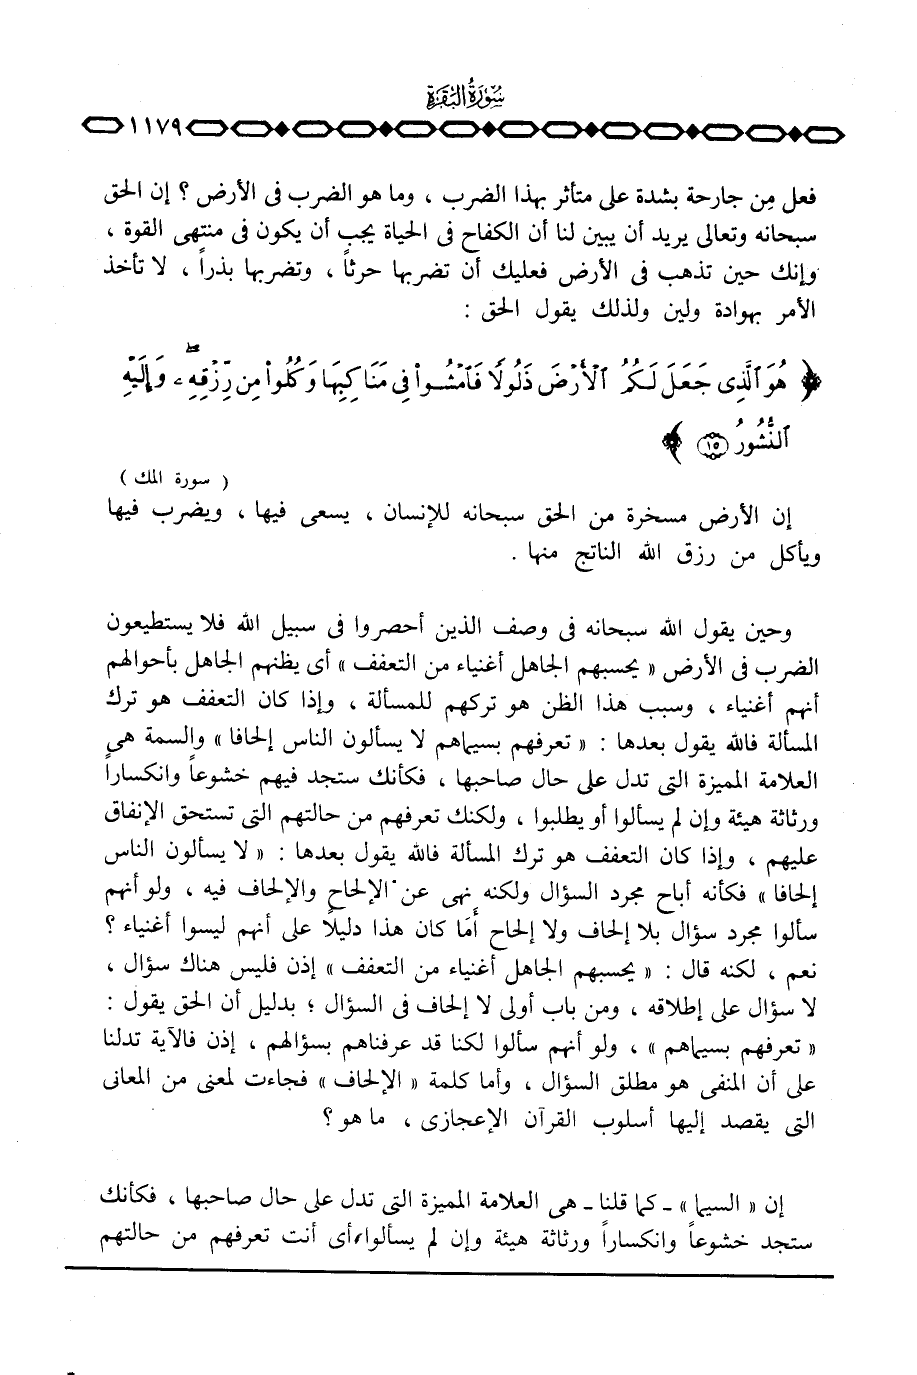 سورة البقرة
١١٧٩
فعل مِن جارحة بشدة على متأثر بهذا الضرب ، وما هو الضرب فى الأرض ؟ إن الحق
سبحانه وتعالى يريد أن يبين لنا أن الكفاح فى الحياة يجب أن يكون فى منتهى القوة ،
وإنك حين تذهب فى الأرض فعليك أن تضربها حرثاً ، وتضربها بذراً ، لا تأخذ
الأمر بهوادة ولين ولذلك يقول الحق :
﴿ هُوَ ٱلَّذِى جَعَلَ لَكُمُ ٱلْأَرْضَ ذَلُولًا فَٱمْشُوا۟ فِى مَنَاكِبِهَا وَكُلُوا۟ مِن رِّزْقِهِۦ ۖ وَإِلَيْهِ
ٱلنُّشُورُ ١٥ ﴾
( سورة الملك )
إن الأرض مسخرة من الحق سبحانه للإنسان ، يسعى فيها ، ويضرب فيها
ويأكل من رزق الله الناتج منها .
وحين يقول الله سبحانه فى وصف الذين أحصروا فى سبيل الله فلا يستطيعون
الضرب فى الأرض « يحسبهم الجاهل أغنياء من التعفف » أى يظنهم الجاهل بأحوالهم
أنهم أغنياء ، وسبب هذا الظن هو تركهم للمسألة ، وإذا كان التعفف هو ترك
المسألة فالله يقول بعدها : « تعرفهم بسيماهم لا يسألون الناس إلحافا » والسمة هى
العلامة المميزة التى تدل على حال صاحبها ، فكأنك ستجد فيهم خشوعاً وانكساراً
ورثاثة هيئة وإن لم يسألوا أو يطلبوا ، ولكنك تعرفهم من حالتهم التى تستحق الإنفاق
عليهم ، وإذا كان التعفف هو ترك المسألة فالله يقول بعدها : « لا يسألون الناس
إلحافا » فكأنه أباح مجرد السؤال ولكنه نهى عن الإلحاح والإلحاف فيه ، ولو أنهم
سألوا مجرد سؤال بلا إلحاف ولا إلحاح أَمَا كان هذا دليلاً على أنهم ليسوا أغنياء ؟
نعم ، لكنه قال : « يحسبهم الجاهل أغنياء من التعفف » إذن فليس هناك سؤال ،
لا سؤال على إطلاقه ، ومن باب أولى لا إلحاف فى السؤال ؛ بدليل أن الحق يقول :
« تعرفهم بسيماهم » ، ولو أنهم سألوا لكنا قد عرفناهم بسؤالهم ، إذن فالآية تدلنا
على أن المنفى هو مطلق السؤال ، وأما كلمة « الإلحاف » فجاءت لمعنى من المعانى
التى يقصد إليها أسلوب القرآن الإعجازى ، ما هو ؟
إن « السيما » ـ كما قلنا ـ هى العلامة المميزة التى تدل على حال صاحبها ، فكأنك
ستجد خشوعاً وانكساراً ورثاثة هيئة وإن لم يسألوا، أى أنت تعرفهم من حالتهم